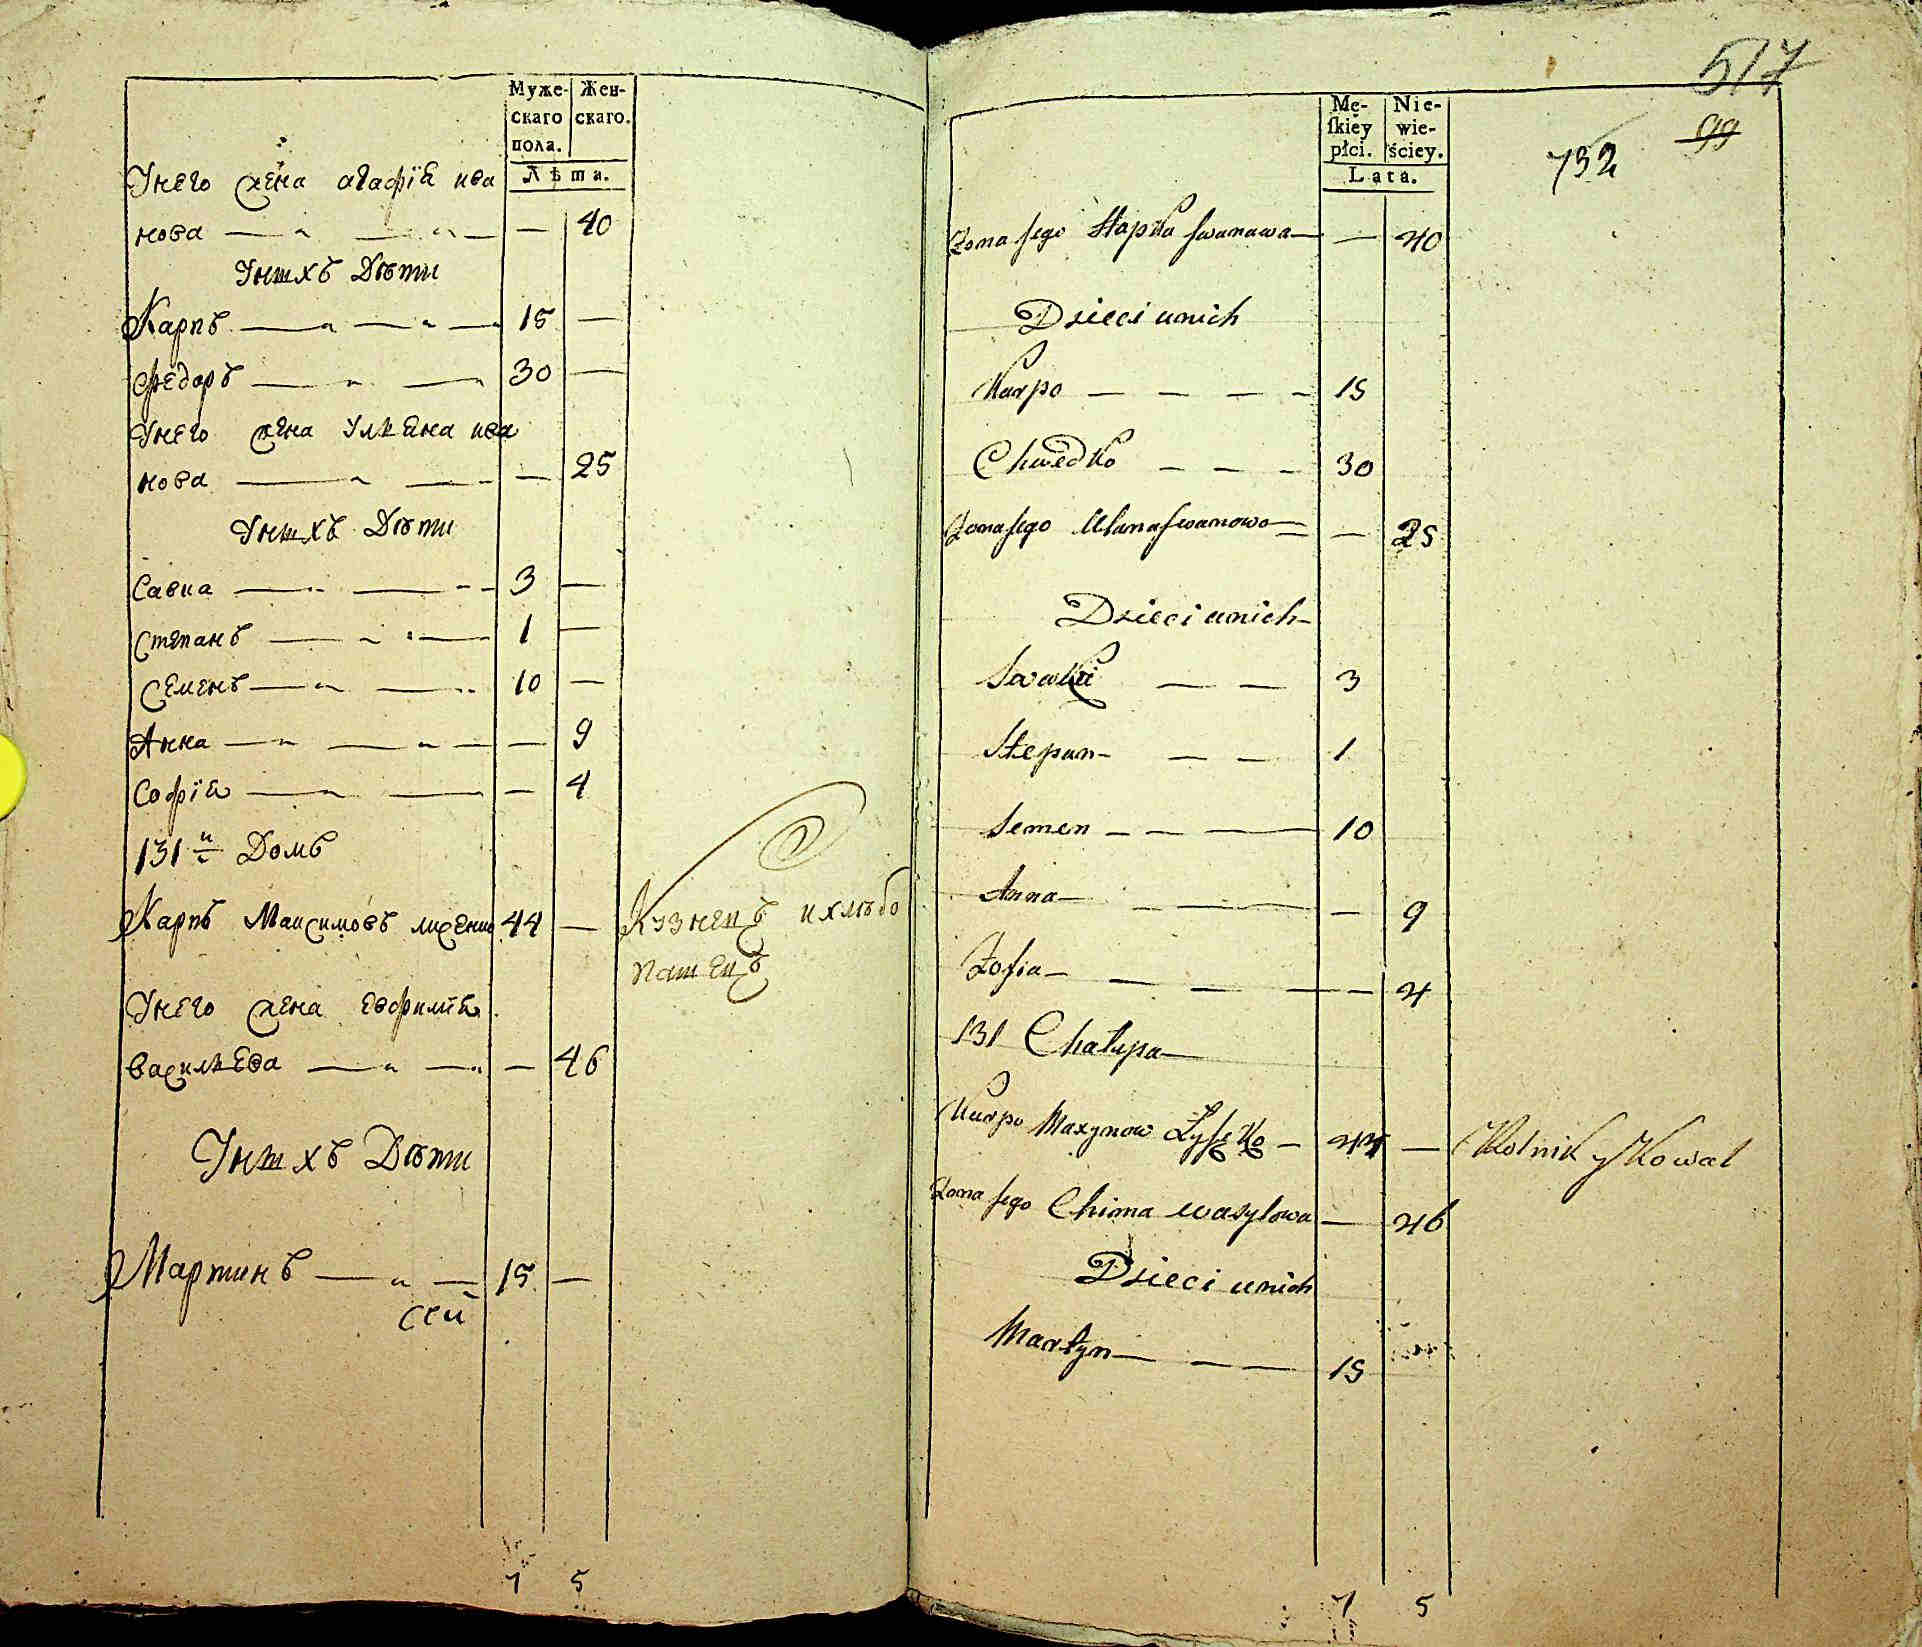 Муже-
скаго
пола.
Жен-
скаго.
Лѣта.
Унего жена агафїя ива
нова — — — 40
Унихъ Дѣти
Карпъ — — — 15 —
Федоръ — — 30 —
Унего жена Ульяна ива
нова — — — 25
Унихъ Дѣти
Савка — — — 3 —
Степанъ — — — 1 —
Семенъ — — 10 —
Анна — — — — 9
Софїя — — — 4
131й Домъ
Карпъ Максимовъ 44 — Кузнецъ и хлѣбо
пашецъ
Унего жена Евфимїя
васильева — — — 46
Унихъ Дѣти
Мартинъ — — 15 —
сей
7 5
517
99
732
Mę-
ſkiey
płci.
Nie-
wie-
ściey.
Lata.
Zona Jego Hapka Jwanawa — — 40
Dzieci unich
Karpo — — — — 15
Chwedko — — — 30
Zona Jego Ulana Jwanowa — — 25
Dzieci unich
Sawka — — 3
Stepan — — — 1
Semen — — — 10
Anna — — — — — 9
Zofia — — — — — 4
131 Chałupa —
Karpo Maxymow — 44 — Rolnik y Kowal
Zona Jego Chima wasylowa — 46
Dzieci unich
Martyn — — — 15
7 5